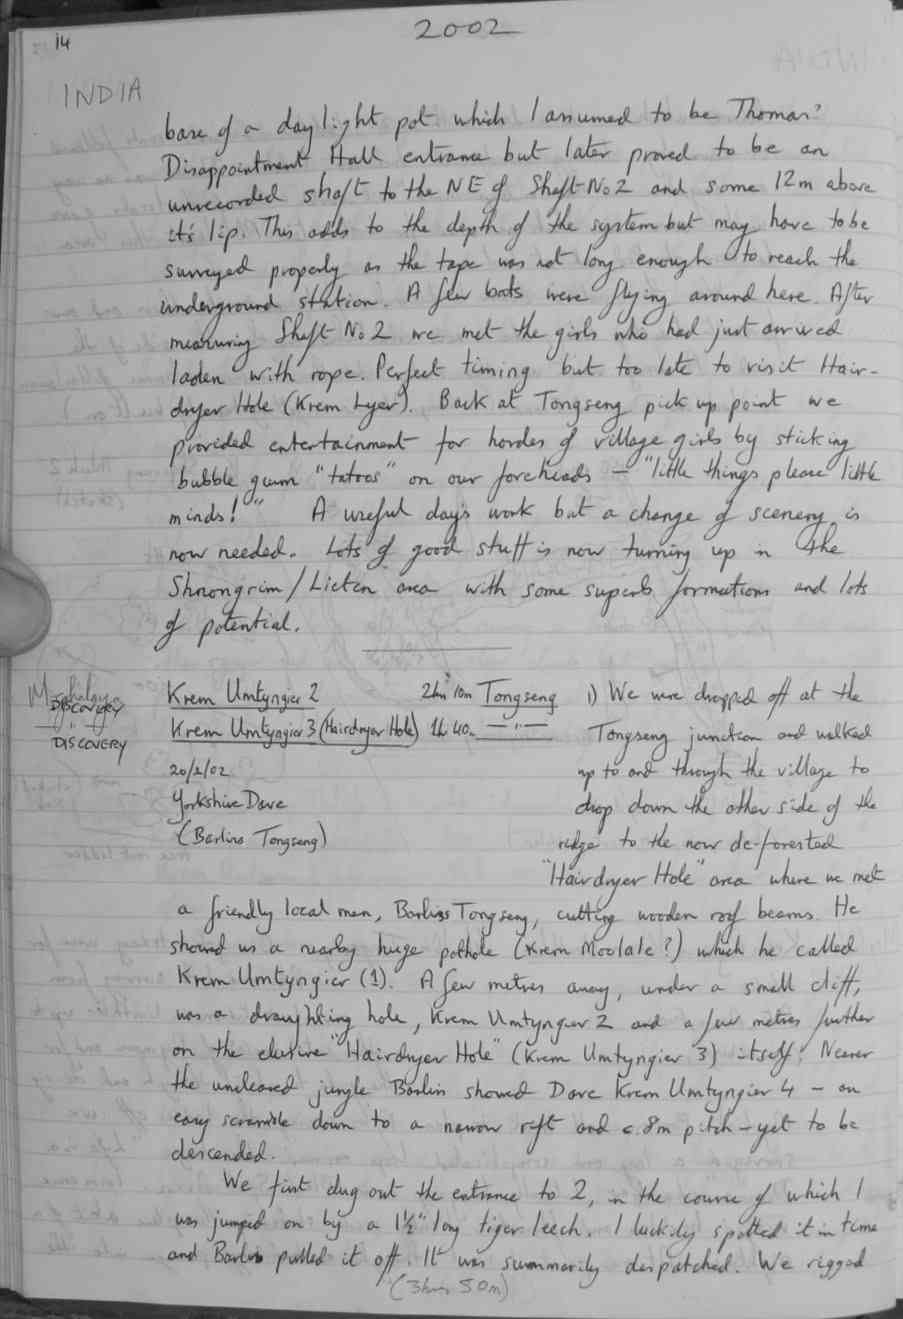 14
2002
INDIA
base of a daylight pot which I assumed to be Thomas'
Disappointment Hall entrance but later proved to be an
unrecorded shaft to the NE of Shaft No 2 and some 12m above
it's lip. This adds to the depth of the system but may have to be
surveyed properly as the tape was not long enough to reach the
underground station. A few bats were flying around here. After
measuring Shaft No 2 we met the girls who had just arrived
laden with rope. Perfect timing but too late to visit Hair-
dryer Hole (Krem Lyer). Back at Tongseng pick up point we
provided entertainment for hordes of village girls by sticking
bubble gum "tatoos" on our foreheads - "little things please little
minds!" A useful day's work but a change of scenery is
now needed. Lots of good stuff is now turning up in the
Shnongrim/Lieten area with some superb formations and lots
of potential.
Meghalaya
DISCOVERY
DISCOVERY
Krem Umtyngier 2 2hr 10m Tongseng
Krem Umtyngier 3 (Hairdryer Hole) 1h 40m —"—
20/2/02
Yorkshire Dave
(Barlins Tongseng)
1) We were dropped off at the
Tongseng junction and walked
up to and through the village to
drop down the other side of the
ridge to the now de-forested
"Hairdryer Hole" area where we met
a friendly local man, Barlins Tongseng, cutting wooden roof beams. He
showed us a nearby huge pothole (Krem Moolale?) which he called
Krem Umtyngier (1). A few metres away, under a small cliff,
was a draughting hole, Krem Umtyngier 2 and a few metres further
on the elusive "Hairdryer Hole" (Krem Umtyngier 3) itself. Nearer
the uncleared jungle Barlin showed Dave Krem Umtyngier 4 - an
easy scramble down to a narrow rift and c.8m pitch - yet to be
descended.
We first dug out the entrance to 2, in the course of which I
was jumped on by a 1½" long tiger leech. I luckily spotted it in time
and Barlin pulled it off. It was summarily despatched. We rigged
(3hrs 50m)